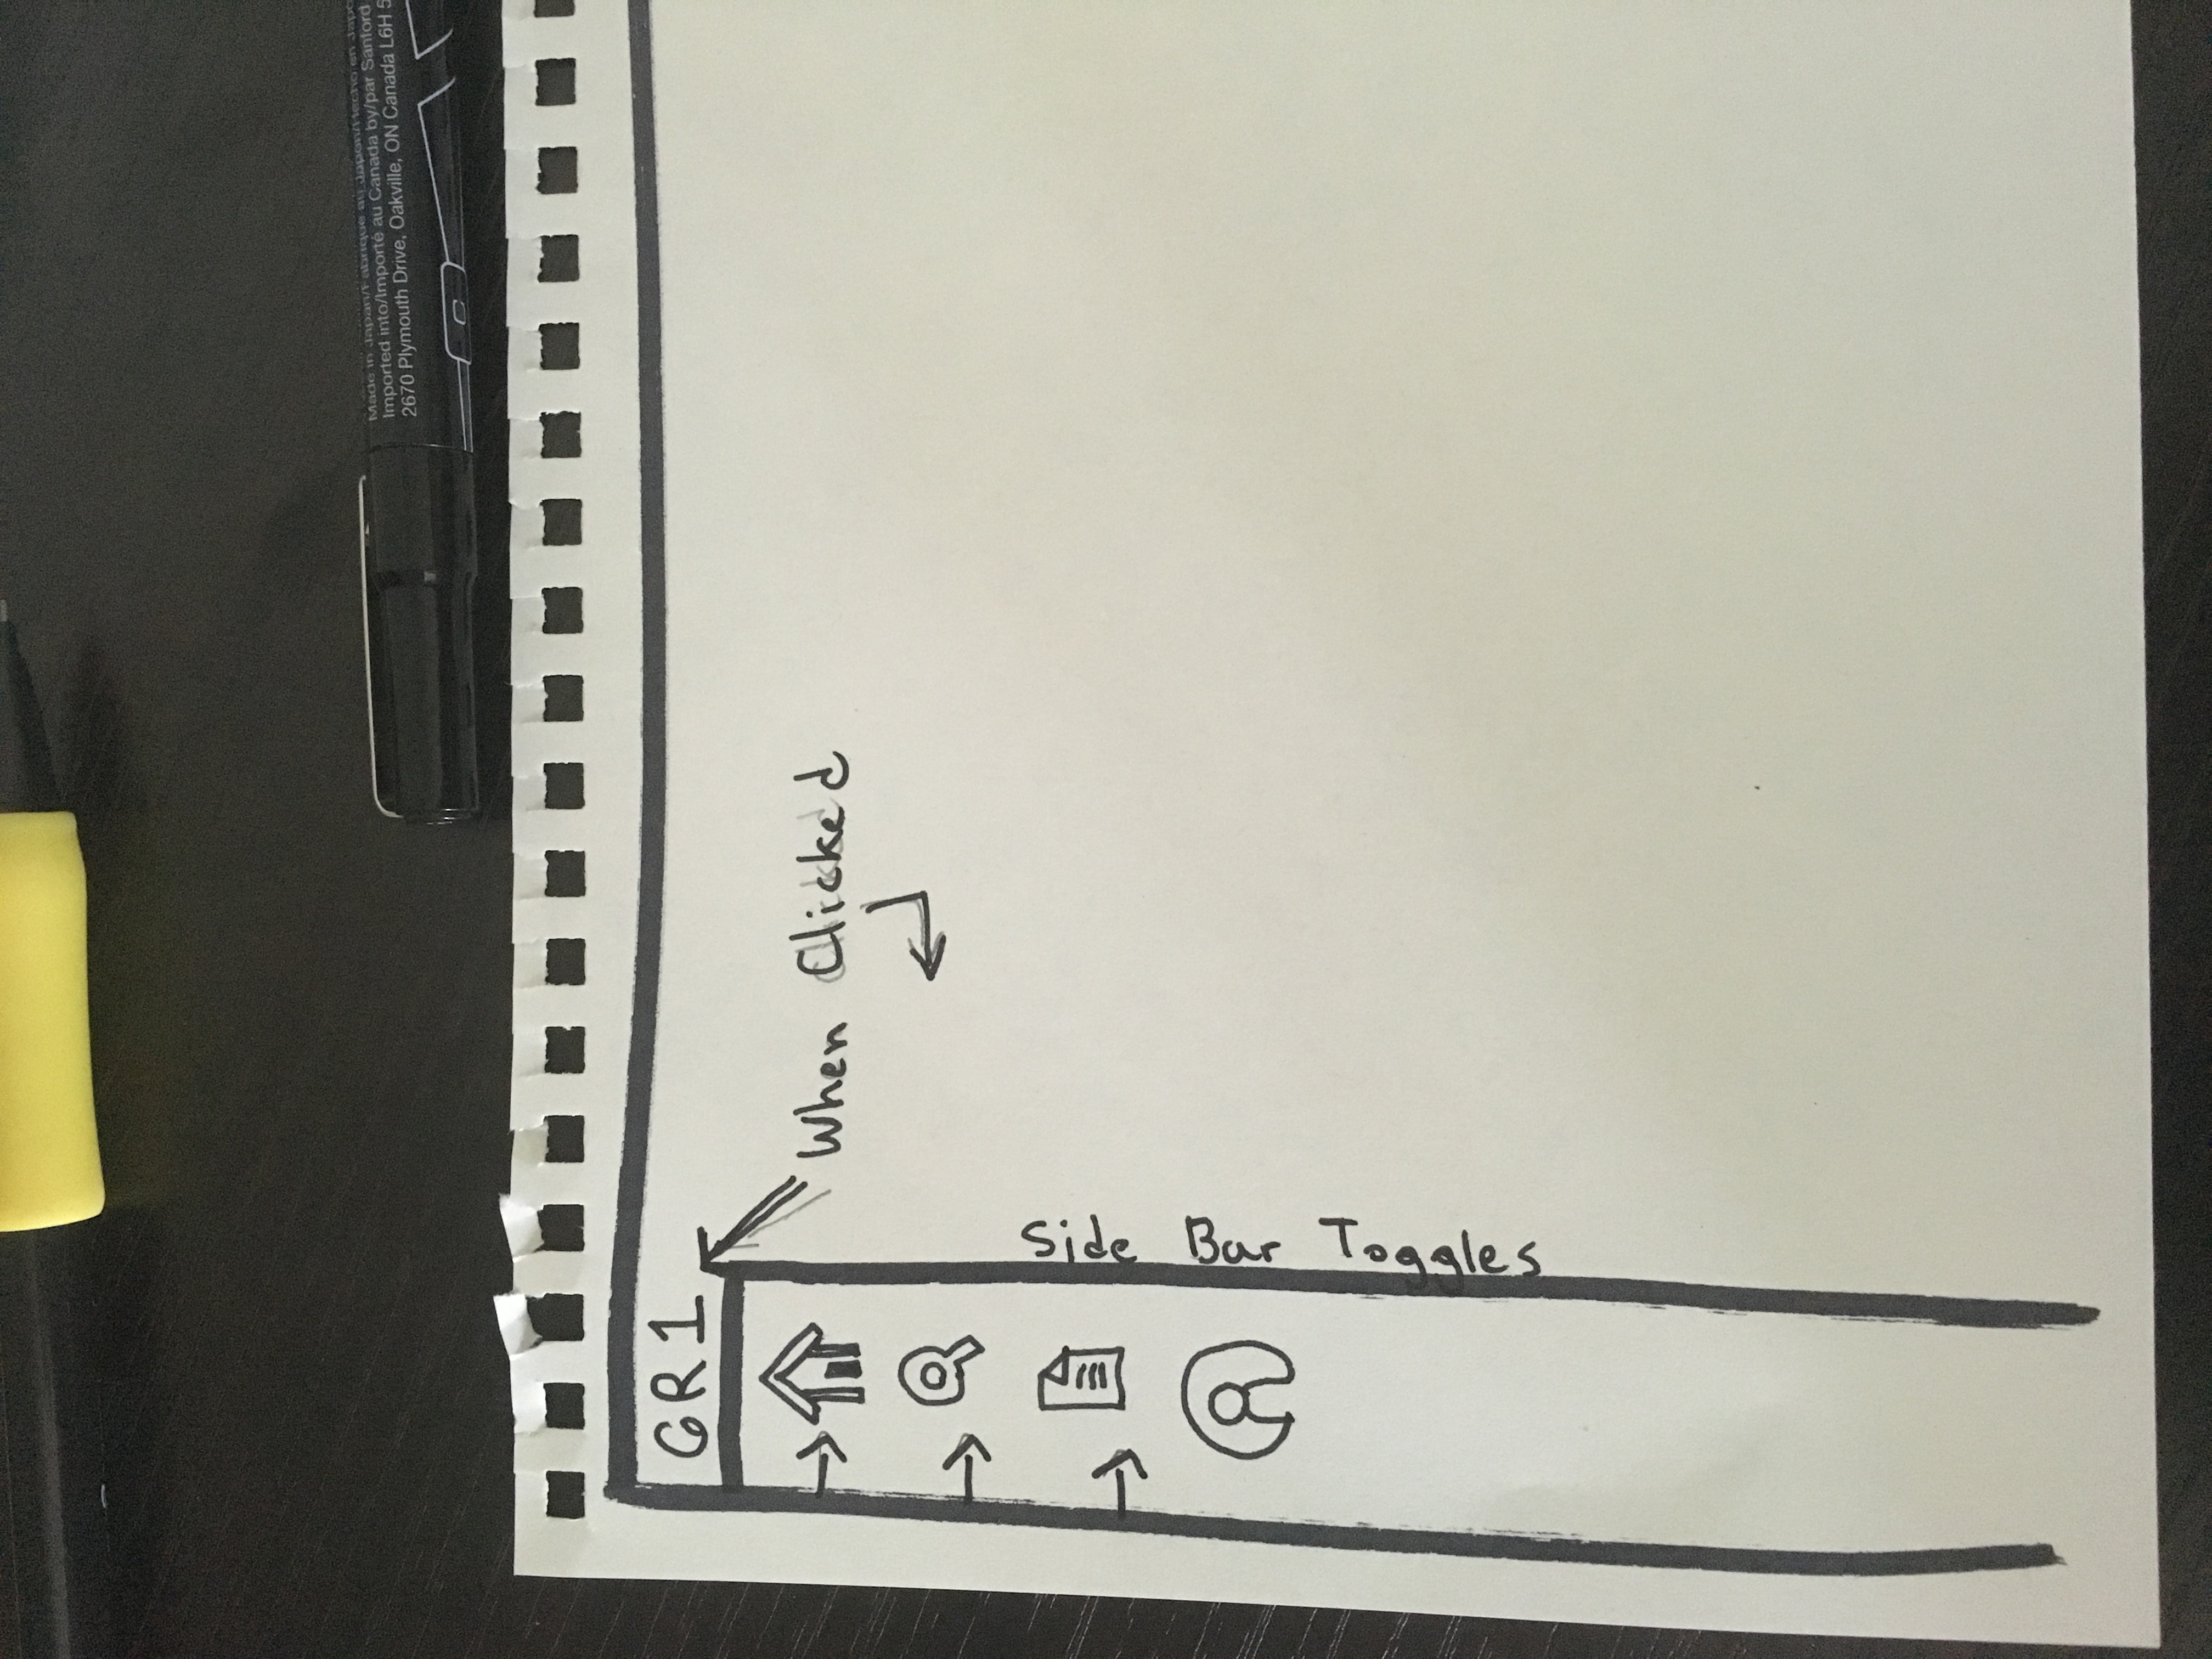 Made in Japan/Fabriqué au Japon/Hecho en Japó
Imported into/Importé au Canada by/par Sanford
2670 Plymouth Drive, Oakville, ON Canada L6H 5
C
GR1
When Clicked
Side Bar Toggles